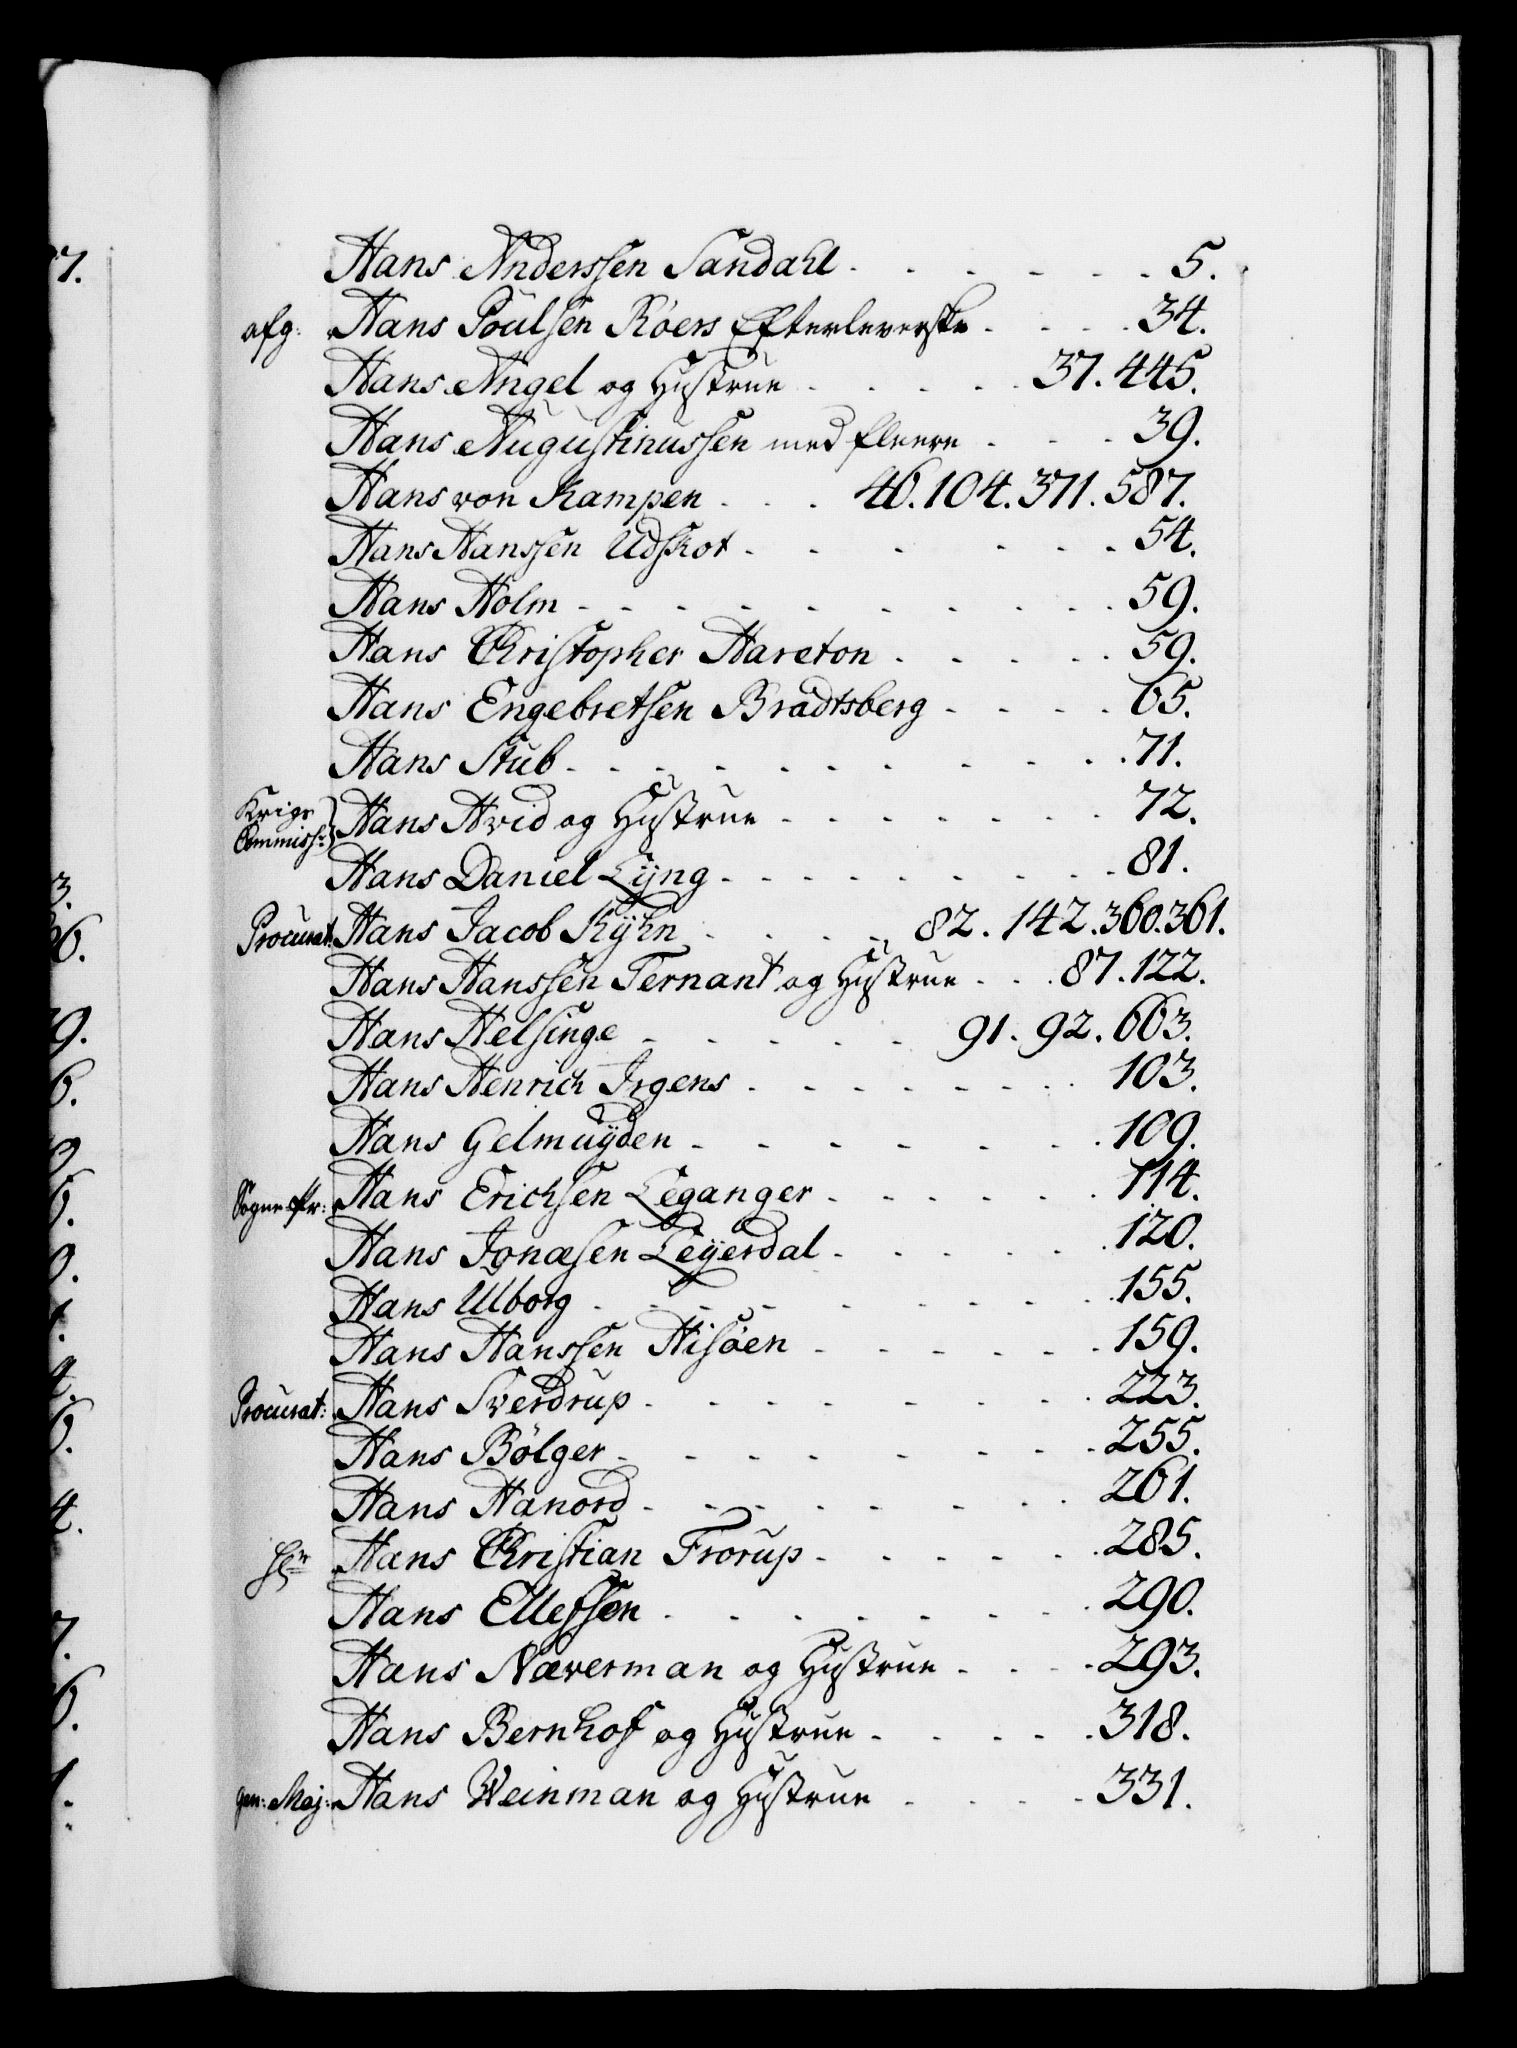 Hans Anderssen Sandahl . . . . . . 5.
afg: Hans Poulsen Röers Efterleverske . . . 34.
Hans Angel og Hustrue . . . . 37. 445.
Hans Augustinussen med fleere . . . 39.
Hans von Kampen . . . 46. 104. 371. 587.
Hans Hanssen Udskot . . . . . . 54.
Hans Holm . . . . . . . . . 59.
Hans Christopher Hareton . . . . . 59.
Hans Engebretsen Bradtsberg . . . . 65.
Hans Stub . . . . . . . . . 71.
Krigs Commiss: Hans Hvid og Hustrue . . . . . . 72.
Hans Daniel Lyng . . . . . . . . 81.
Procurat: Hans Jacob Kyhn . . . . 82. 142. 360. 361.
Hans Hanssen Ternant og Hustrue . . . 87. 122.
Hans Helsinge . . . . . 91. 92. 603.
Hans Henrich Irgens . . . . . . . 103.
Hans Gelmuyden . . . . . . . 109.
Sogne Pr: Hans Erichsen Leganger . . . . . . 114.
Hans Jonæsen Leyerdal . . . . . . 120.
Hans Ulborg . . . . . . . . 155.
Hans Hanssen Hisöen . . . . . . 159.
Procurat: Hans Sverdrup . . . . . . . . 223.
Hans Bölger . . . . . . . 255.
Hans Hanord . . . . . . . 261.
Hr Hans Christian Frorup . . . . . 285.
Hans Ellefsen . . . . . . . 290.
Hans Næverman og Hustrue . . . . 293.
Hans Bernhof og Hustrue . . . . . 318.
gen: Maj: Hans Weinman og Hustrue . . . . 331.